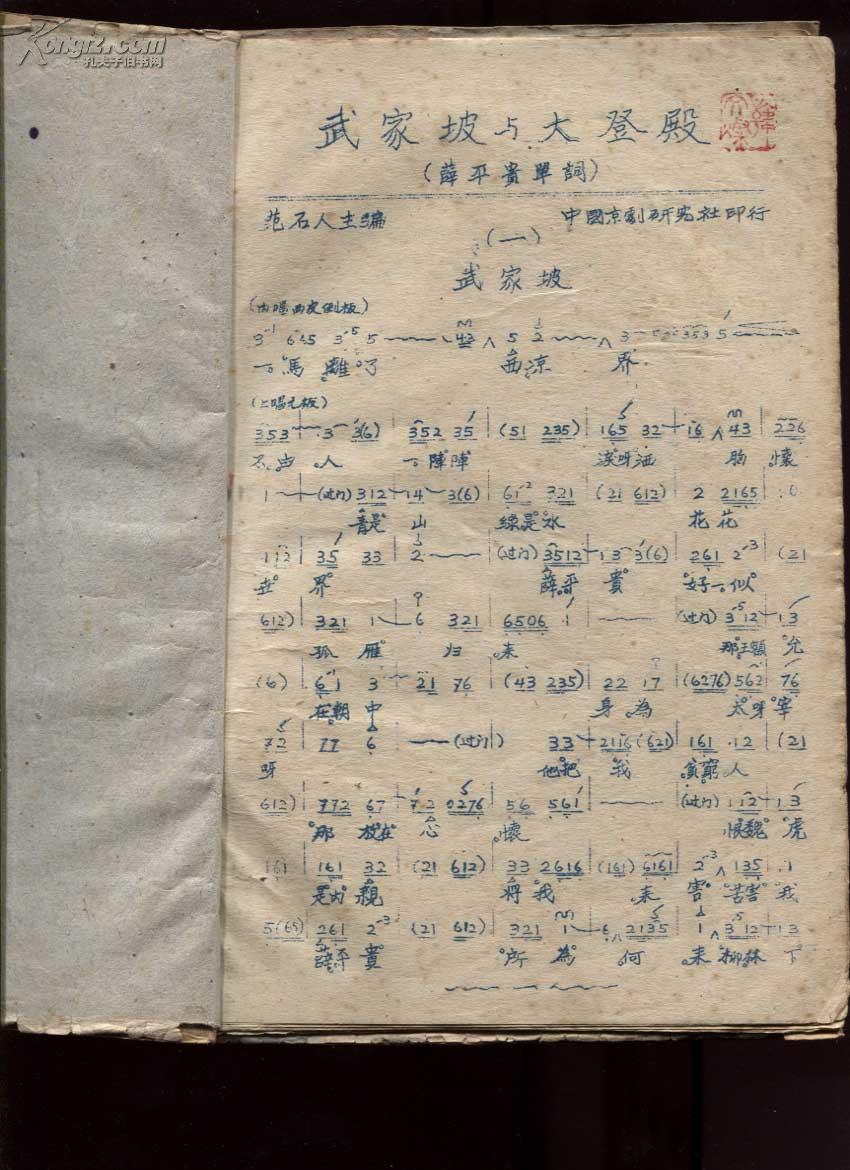 Kongfz.com
孔夫子旧书网
武家坡与大登殿
(薛平贵單詞)
范石人主編
中國京劇研究社印行
(一)
武家坡
(内唱西皮倒板)
一馬離了 西涼 界
(上唱元板)
353 3 3(6) 352 35 (51 235) 165 32 16 43 226
不由 人 一陣陣 淚呀洒 胸 懷
1 (过门) 312 14 3(6) 61 321 (21 612) 2 2165 0
青是 山 綠是水 花花
112 35 33 2 (过门) 3512 13 3(6) 261 2 (21
世 界 薛平 貴 好一似
612) 321 1 6 321 6506 1 (过门) 312 13
孤 雁 归 来 那王願 允
(6) 61 3 21 76 (43 235) 22 17 (6276) 562 76
在朝 中 身為 太呀宰
72 77 6 (过门) 33 2116 (621) 161 12 (21
呀 他把 我 貧窮 人
612) 772 67 72 0276 56 561 (过门) 112 13
那 放在 心 懷 恨魏 虎
161 161 32 (21 612) 33 2616 (161) 6161 2 135 1
是内 親 將我 来 害 苦害 我
5(65) 261 2 (21 612) 321 1 6 2135 1 312 13
薛平 貴 所為 何 来 柳林 下
一